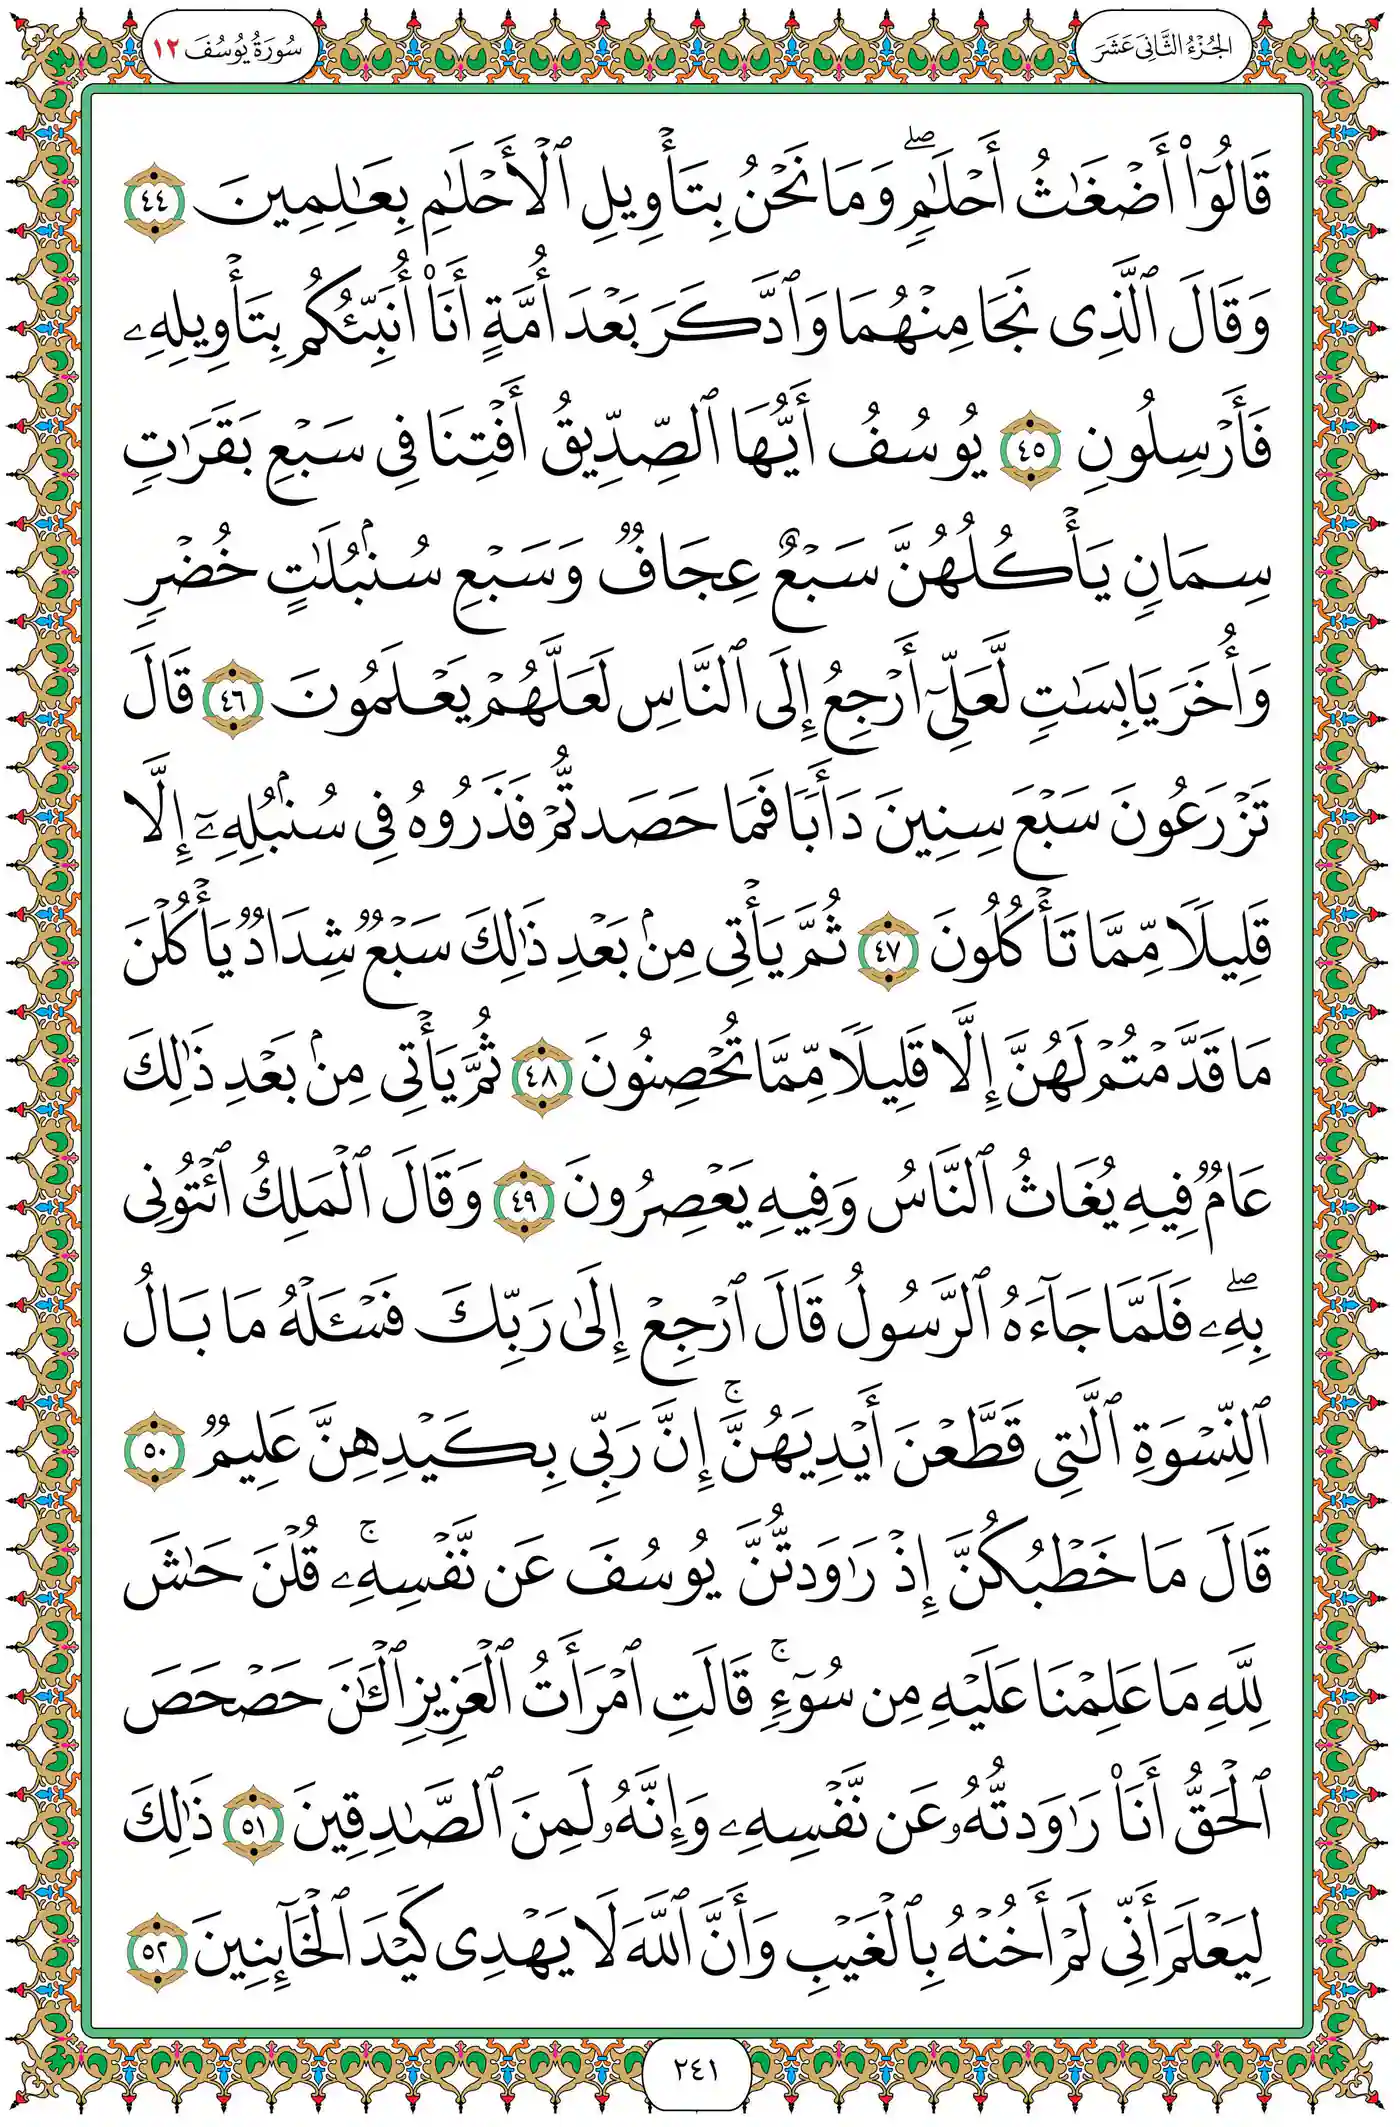 الجُزْءُ الثَّانِي عَشَرَ
سُورَةُ يُوسُفَ ١٢
قَالُوٓاْ أَضْغَٰثُ أَحْلَٰمٖۖ وَمَا نَحْنُ بِتَأْوِيلِ ٱلْأَحْلَٰمِ بِعَٰلِمِينَ ٤٤
وَقَالَ ٱلَّذِى نَجَا مِنْهُمَا وَٱدَّكَرَ بَعْدَ أُمَّةٍ أَنَا۠ أُنَبِّئُكُم بِتَأْوِيلِهِۦ
فَأَرْسِلُونِ ٤٥ يُوسُفُ أَيُّهَا ٱلصِّدِّيقُ أَفْتِنَا فِى سَبْعِ بَقَرَٰتٖ
سِمَانٖ يَأْكُلُهُنَّ سَبْعٌ عِجَافٞ وَسَبْعِ سُنۢبُلَٰتٍ خُضْرٖ
وَأُخَرَ يَابِسَٰتٖ لَّعَلِّىٓ أَرْجِعُ إِلَى ٱلنَّاسِ لَعَلَّهُمْ يَعْلَمُونَ ٤٦ قَالَ
تَزْرَعُونَ سَبْعَ سِنِينَ دَأَبٗا فَمَا حَصَدتُّمْ فَذَرُوهُ فِى سُنۢبُلِهِۦٓ إِلَّا
قَلِيلٗا مِّمَّا تَأْكُلُونَ ٤٧ ثُمَّ يَأْتِى مِنۢ بَعْدِ ذَٰلِكَ سَبْعٞ شِدَادٞ يَأْكُلْنَ
مَا قَدَّمْتُمْ لَهُنَّ إِلَّا قَلِيلٗا مِّمَّا تُحْصِنُونَ ٤٨ ثُمَّ يَأْتِى مِنۢ بَعْدِ ذَٰلِكَ
عَامٞ فِيهِ يُغَاثُ ٱلنَّاسُ وَفِيهِ يَعْصِرُونَ ٤٩ وَقَالَ ٱلْمَلِكُ ٱئْتُونِى
بِهِۦۖ فَلَمَّا جَآءَهُ ٱلرَّسُولُ قَالَ ٱرْجِعْ إِلَىٰ رَبِّكَ فَسْـَٔلْهُ مَا بَالُ
ٱلنِّسْوَةِ ٱلَّٰتِى قَطَّعْنَ أَيْدِيَهُنَّۚ إِنَّ رَبِّى بِكَيْدِهِنَّ عَلِيمٞ ٥٠
قَالَ مَا خَطْبُكُنَّ إِذْ رَٰوَدتُّنَّ يُوسُفَ عَن نَّفْسِهِۦۚ قُلْنَ حَٰشَ
لِلَّهِ مَا عَلِمْنَا عَلَيْهِ مِن سُوٓءٖۚ قَالَتِ ٱمْرَأَتُ ٱلْعَزِيزِ ٱلْـَٰٔنَ حَصْحَصَ
ٱلْحَقُّ أَنَا۠ رَٰوَدتُّهُۥ عَن نَّفْسِهِۦ وَإِنَّهُۥ لَمِنَ ٱلصَّٰدِقِينَ ٥١ ذَٰلِكَ
لِيَعْلَمَ أَنِّى لَمْ أَخُنْهُ بِٱلْغَيْبِ وَأَنَّ ٱللَّهَ لَا يَهْدِى كَيْدَ ٱلْخَآئِنِينَ ٥٢
٢٤١